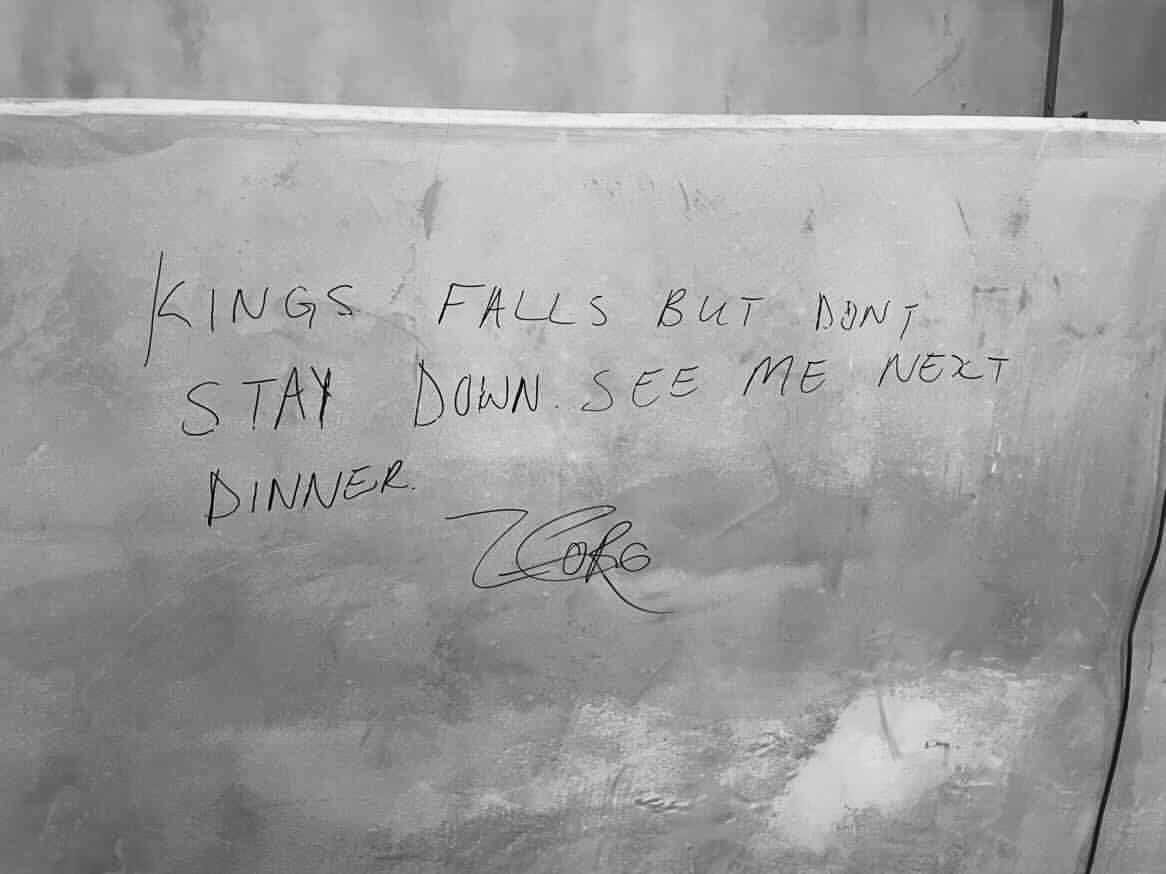 KINGS FALLS BUT DONT
STAY DOWN. SEE ME NEXT
DINNER.